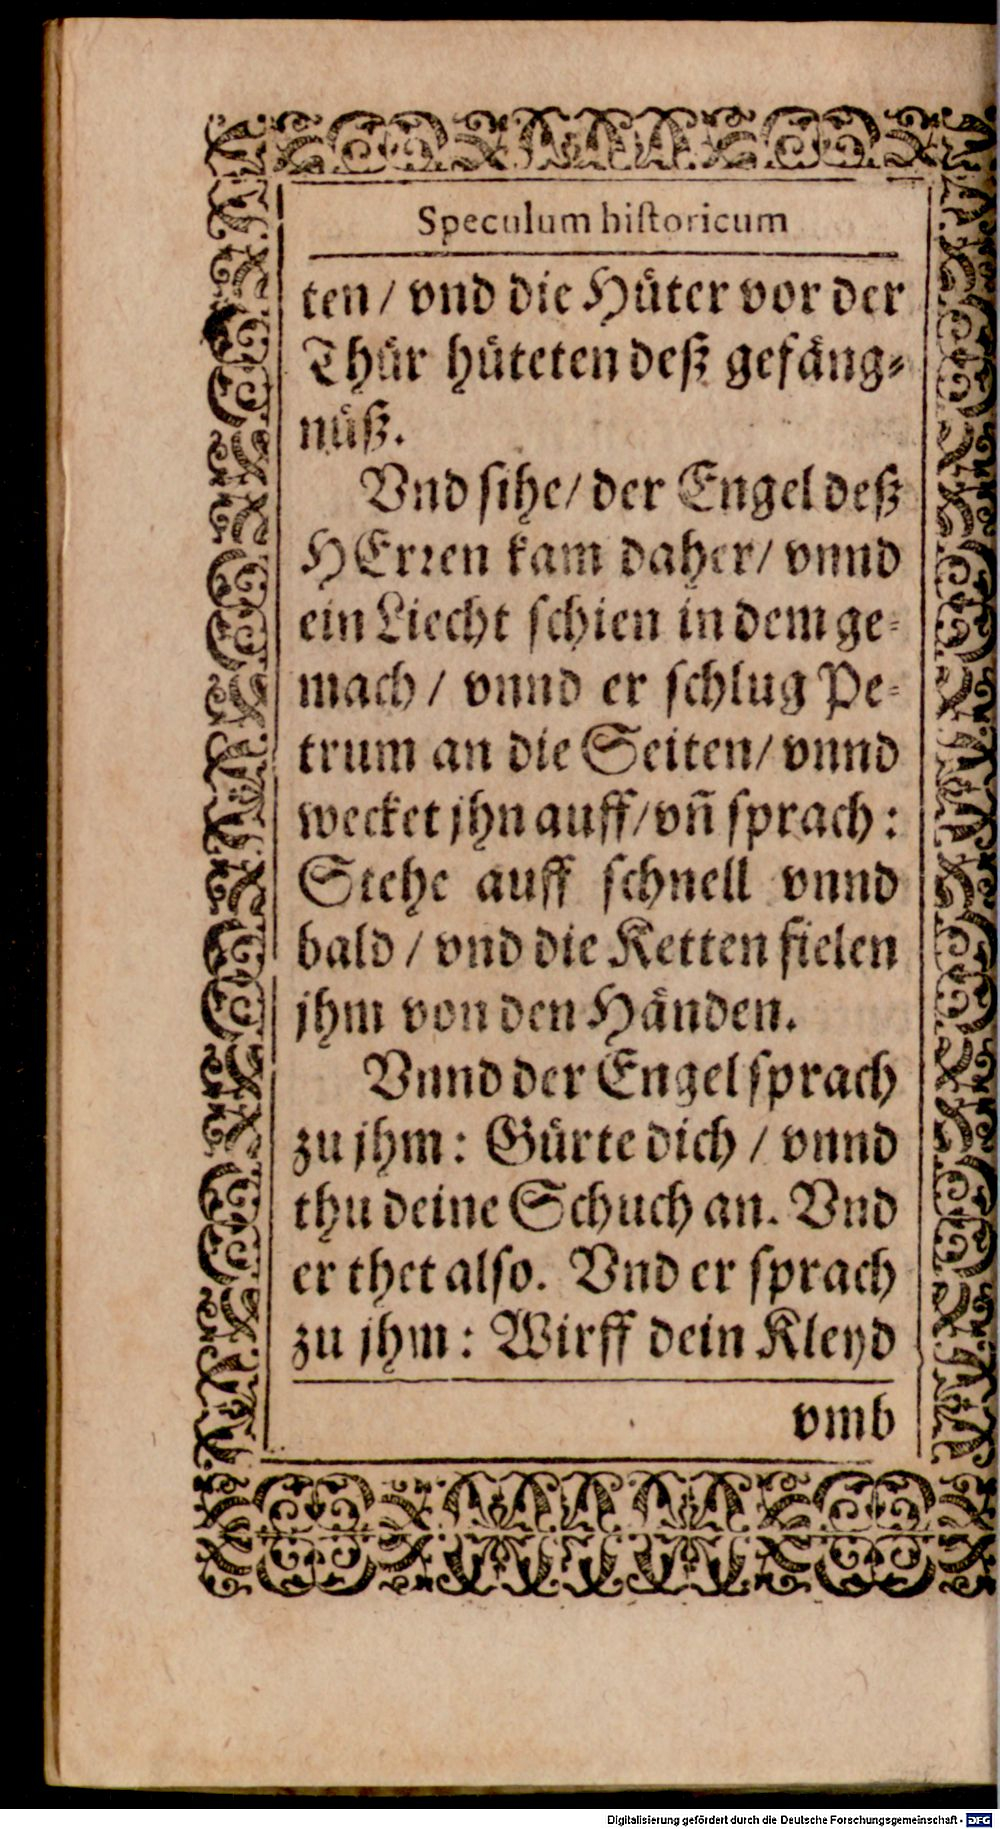 Speculum historicum
ten / vnd die Hüter vor der
Thür hüteten deß gefäng-
nüß.
Vnd sihe / der Engel deß
HErren kam daher / vnnd
ein Liecht schien in dem ge-
mach / vnnd er schlug Pe-
trum an die Seiten / vnnd
wecket jhn auff / vñ sprach :
Stehe auff schnell vnnd
bald / vnd die Ketten fielen
jhm von den Händen.
Vnnd der Engel sprach
zu jhm : Gürte dich / vnnd
thu deine Schuch an. Vnd
er thet also. Vnd er sprach
zu jhm : Wirff dein Kleyd
vmb
Digitalisierung gefördert durch die Deutsche Forschungsgemeinschaft - DFG